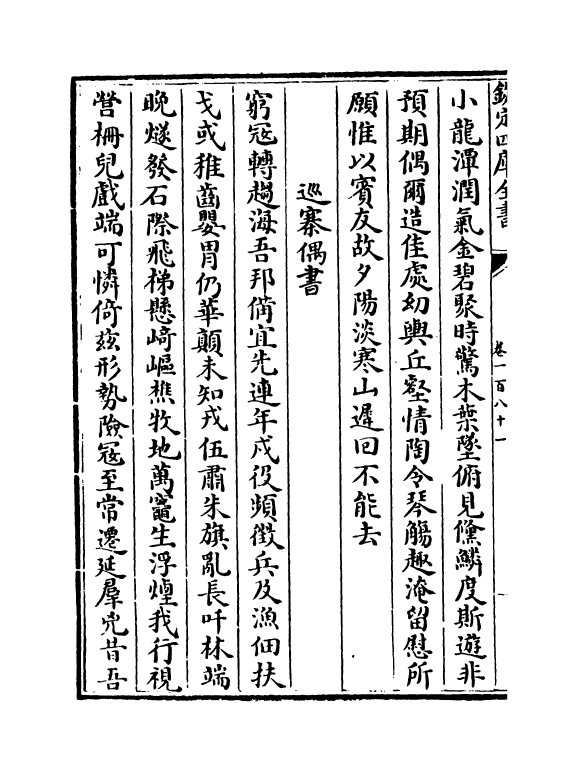 欽定四庫全書
卷一百八十一
小龍潭潤氣金碧聚時驚木葉墜俯見儵鱗度斯遊非
預期偶爾造佳處幼輿丘壑情陶令琴觴趣淹留慰所
願惟以賓友故夕陽淡寒山遲回不能去
廵寨偶書
窮冦轉趨海吾邦備宜先連年戍役頻徴兵及漁佃扶
戈或稚齒嬰胄仍華顛未知戎伍肅朱旗亂長阡林端
晩燧發石際飛梯懸﨑嶇樵牧地萬竈生浮煙我行視
營柵兒戲端可憐倚兹形勢險冦至常遷延羣兇昔吾